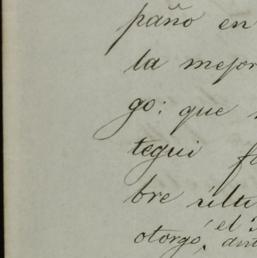 paño en
la mejor
go: que
tegui
bre últi
el
otorgó,